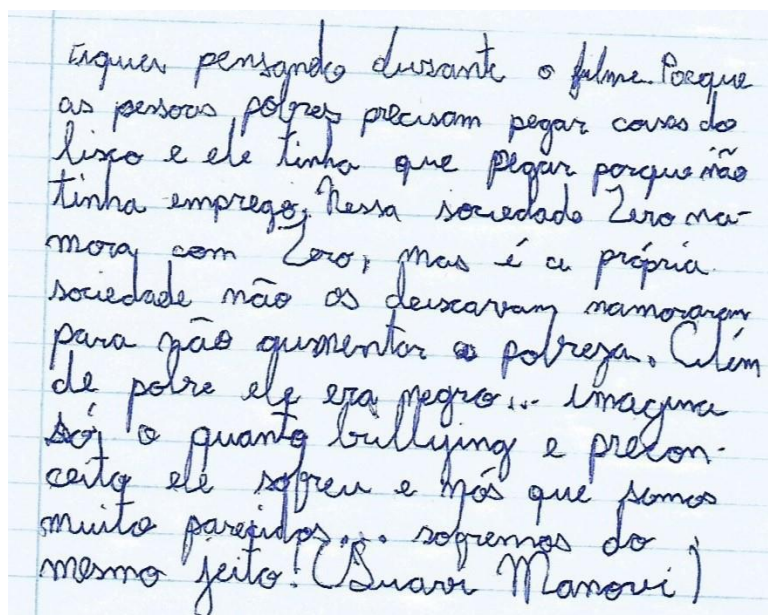 Fiquei pensando durante o filme. Porque
as pessoas pobres precisam pegar coisas do
lixo e ele tinha que pegar porque não
tinha emprego. Nessa sociedade Zero na-
mora com Zero, mas é a própria
sociedade não os deixavam namorarem
para não aumentar a pobreza. Além
de pobre ele era negro... imagina
só o quanto bullying e precon-
ceito ele sofreu e nós que somos
muito parecidos... sofremos do
mesmo jeito! (Suavi Manovi)